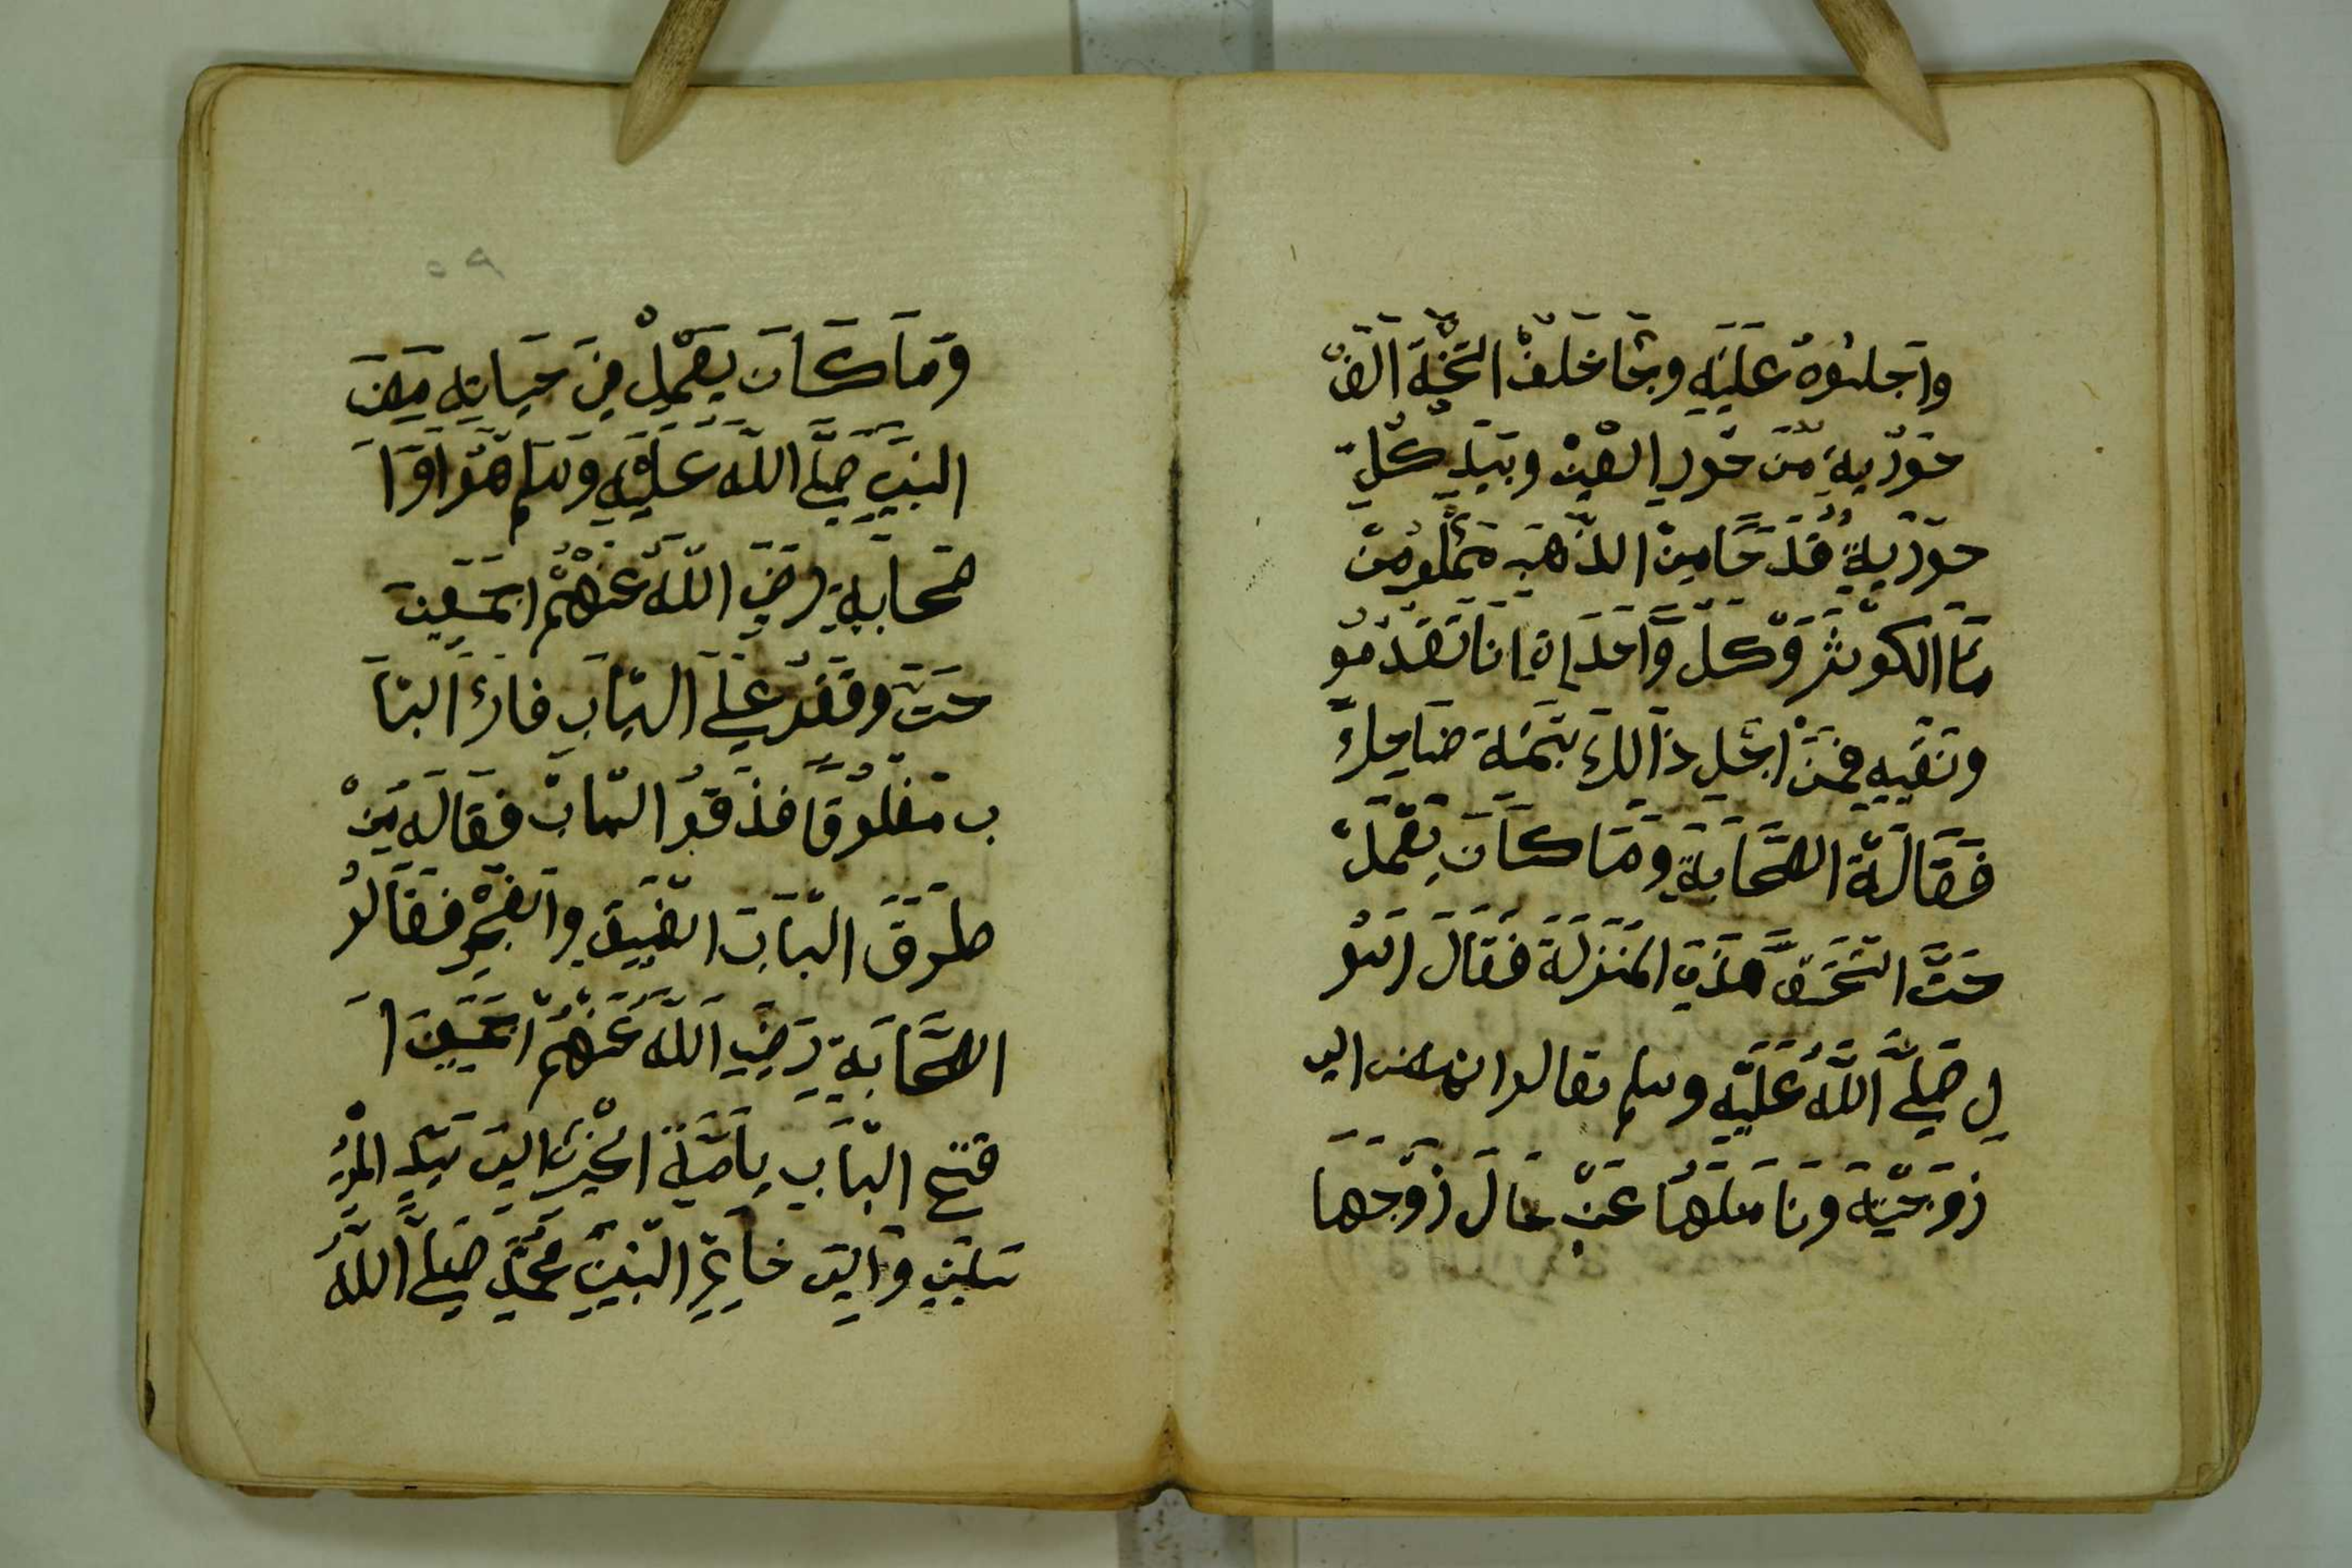 واجلسوه عليه وجا خلف التخة الف
حورية من حور العين وبيد كل
حورية قدحا من الذهب مملو من
ما الكوثر وكل واحداة انا تقدمو
وتسقيه فمن اجل ذالك بتسمة ضاحك
فقالة الصحابة وما كان يعمل
حتى استحق هذه المنزلة فقال الرسو
ل صلى الله عليه وسلم تعالوا نمضى الى
زوجته ونسالها عن حال زوجها
وما كان يعمل في حياته مضى
النبي صلى الله عليه وسلم هو اوا
صحابة رضي الله عنهم اجمعين
حتى وقفو على الباب فاذا البا
ب مغلوقا فدقو الباب فقاله من
طرق الباب الضيق والفجر فقالو
الصحابة رضي الله عنهم اجمعين ا
فتح الباب ياصة الخير الى سيد المر
سلين والى خاتم النبيين محمد صلى الله